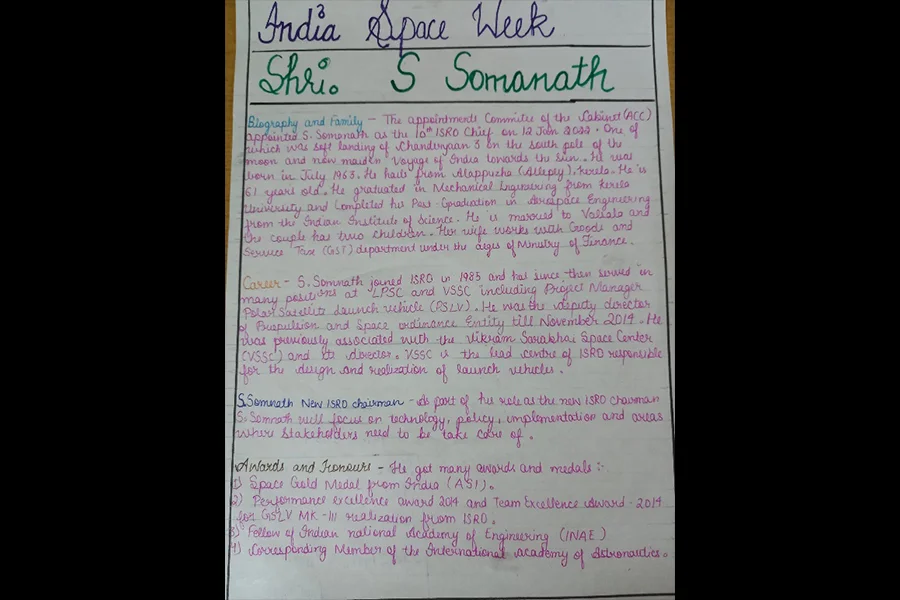 India Space Week
Shri. S Somanath
Biography and Family - The appointments Committee of the Cabinet (ACC)
appointed S. Somanath as the 10th ISRO Chief on 12 Jan 2022. One of
which was soft landing of Chandrayaan 3 on the south pole of the
moon and new maiden Voyage of India towards the sun. He was
born in July 1963. He hails from Alappuzha (Alleply), Kerela. He is
61 years old. He graduated in Mechanical Engineering from Kerela
University and Completed his Post-Graduation in Aerospace Engineering
from the Indian Institute of Science. He is married to Valsala and
the couple has two children. Her wife works with Goods and
Service Tax (GST) department under the aiges of Ministry of Finance.
Career - S. Somnath joined ISRO in 1985 and has since then served in
many positions at LPSC and VSSC including Project Manager
Polar Satellite Launch vehicle (PSLV). He was the deputy director
of Propulsion and Space ordinance Entity till November 2014. He
was previously associated with the Vikram Sarabhai Space Center
(VSSC) and its director. VSSC is the lead centre of ISRO responsible
for the design and realization of launch vehicles.
S.Somnath New ISRO chairman - As part of his role as the new ISRO Chairman
S. Somnath will focus on technology, policy, implementation and areas
where stakeholders need to be take care of.
Awards and Honours - He got many awards and medals :-
1) Space Gold Medal from India (ASI).
2) Performance excellence award 2014 and Team Excellence Award - 2014
for GSLV MK-III realization from ISRO.
3) Follow of Indian national Academy of Engineering (INAE)
4) Corresponding Member of the International Academy of Astronautics.